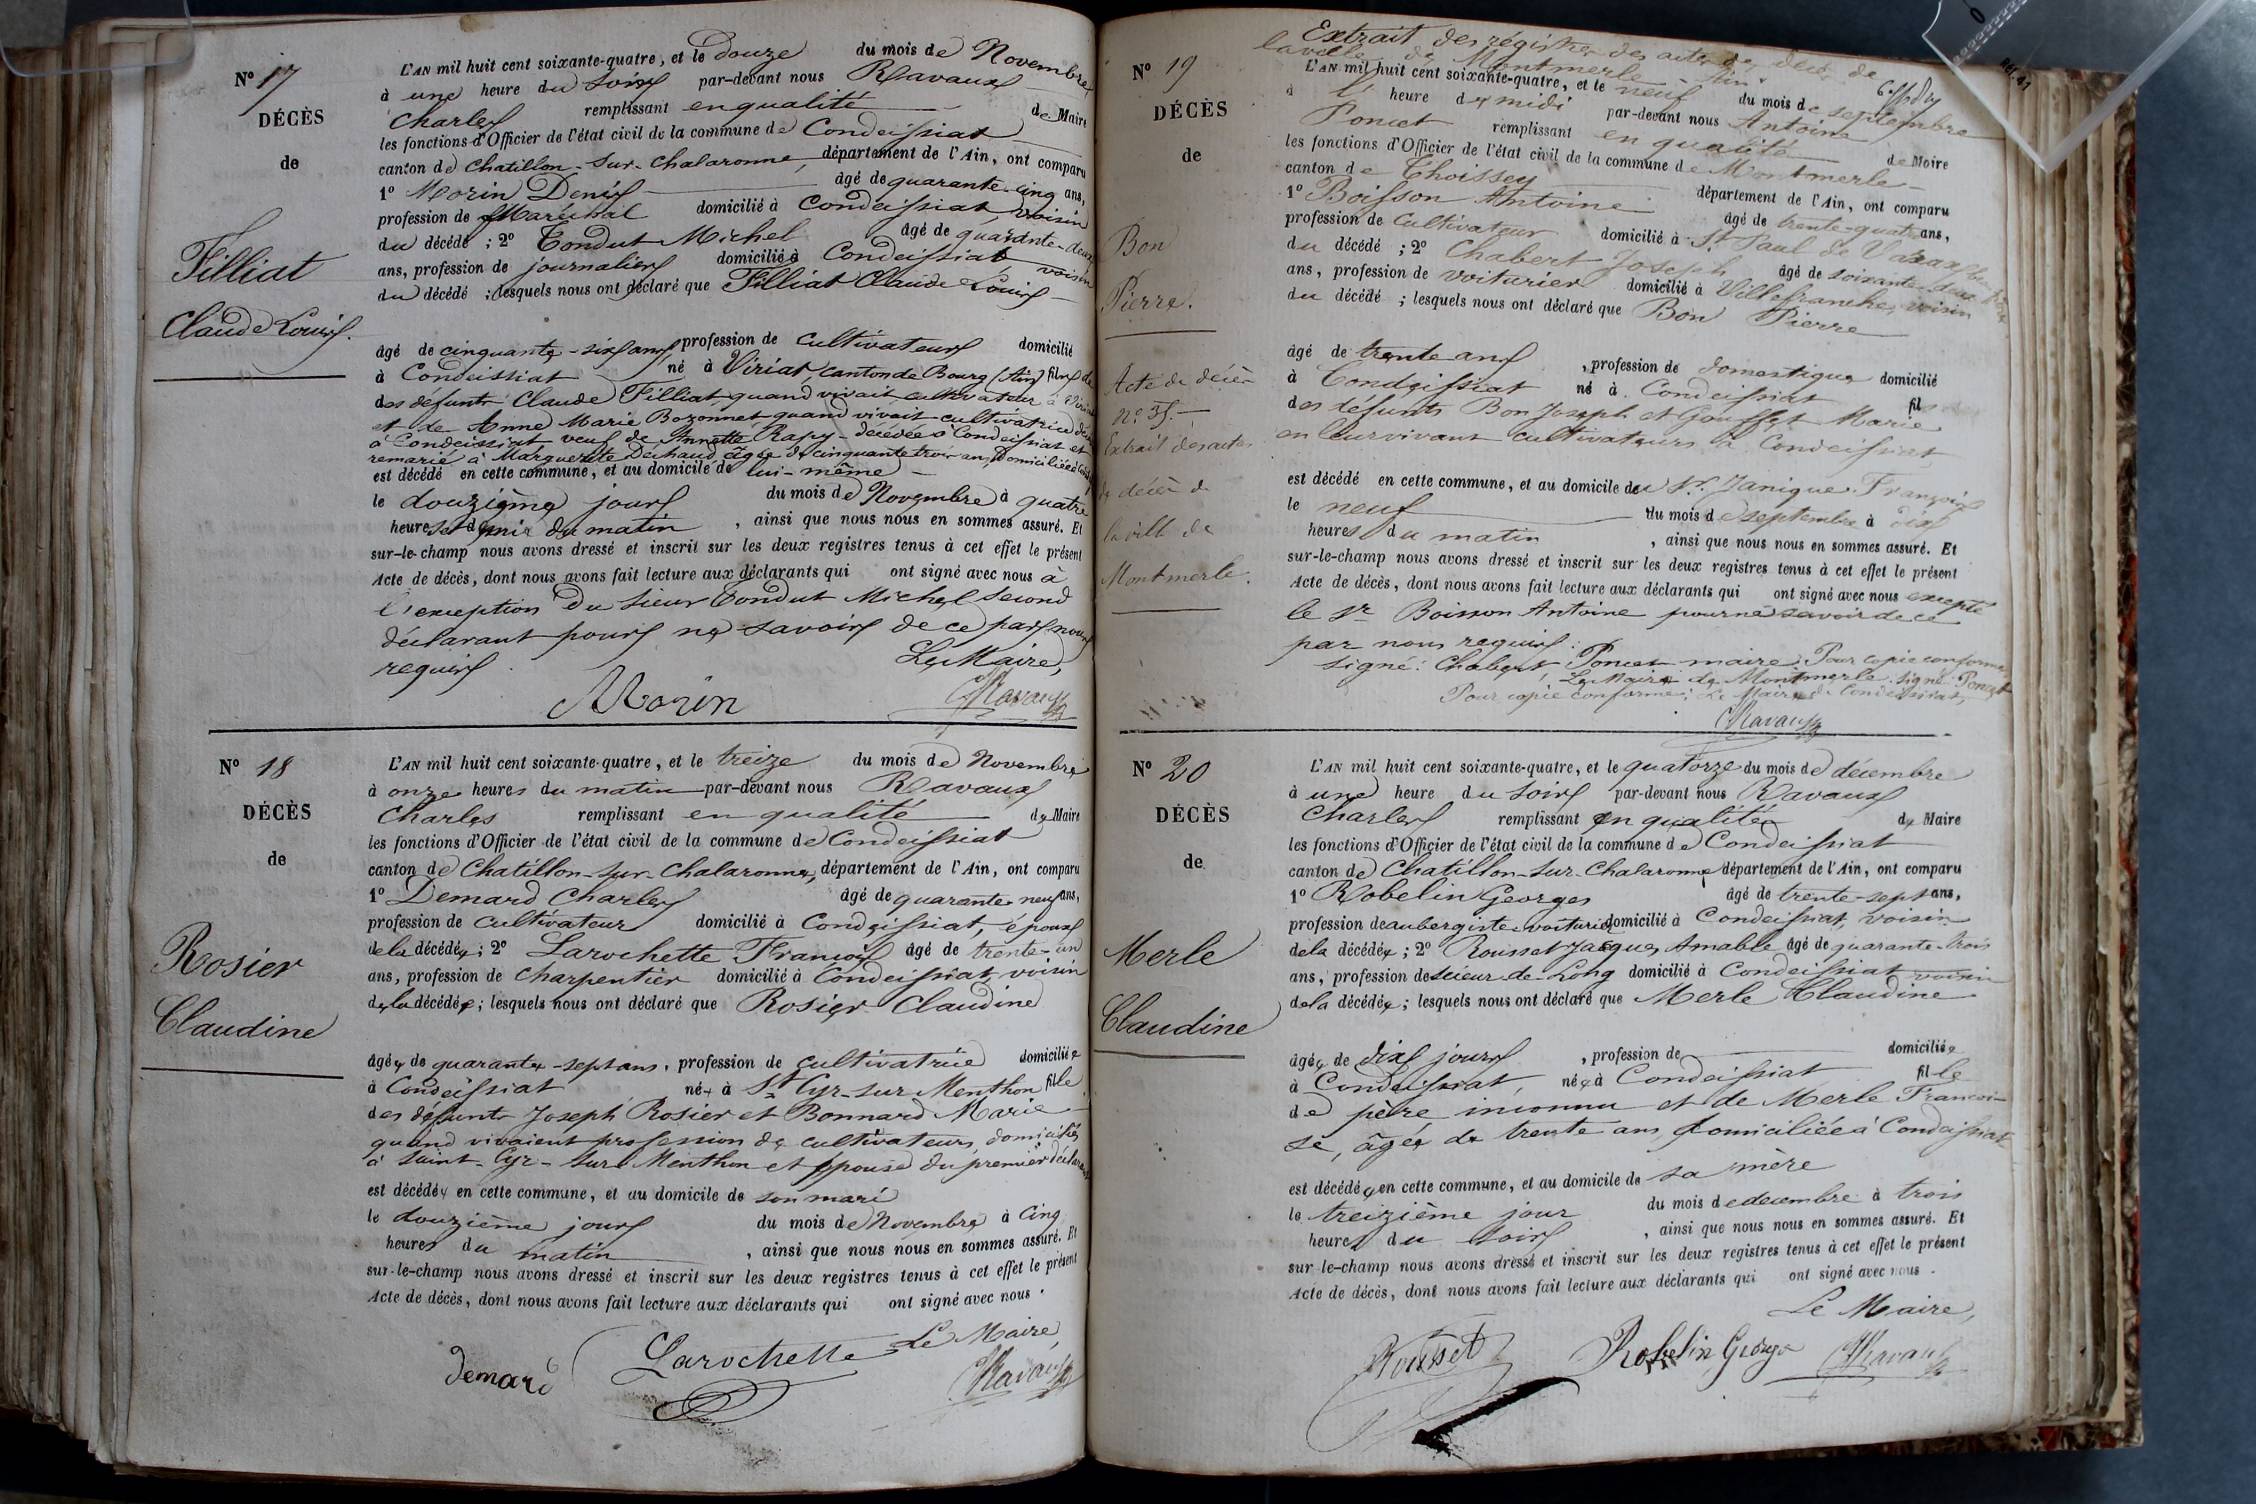 N° 17
DÉCÈS
de
Filliat
Claude Louis.
L'AN mil huit cent soixante-quatre, et le douze du mois de Novembre
à une heure du soir par-devant nous Ravaux
Charles remplissant en qualité de Maire
les fonctions d'Officier de l'état civil de la commune de Condeissiat
canton de Chatillon-sur-Chalaronne, département de l'Ain, ont comparu
1° Morin Denis âgé de quarante-cinq ans,
profession de Maréchal domicilié à Condeissiat voisin
du décédé ; 2° Condut Michel âgé de quarante-deux
ans, profession de journalier domicilié à Condeissiat voisin
du décédé ; lesquels nous ont déclaré que Filliat Claude Louis
âgé de cinquante-six ans profession de cultivateur domicilié
à Condeissiat né à Viriat canton de Bourg (Ain) fils de
des défunts Claude Filliat quand vivait cultivateur à Viriat
et de Anne Marie Bozonnet quand vivait cultivatrice
à Condeissiat veuf de Annette Rapy décédée à Condeissiat et
remarié à Marguerite Dechaud âgée de cinquante trois ans, domiciliée
est décédé en cette commune, et au domicile de lui-même
le douzième jour du mois de Novembre à quatre
heures et demie du matin, ainsi que nous nous en sommes assuré. Et
sur-le-champ nous avons dressé et inscrit sur les deux registres tenus à cet effet le présent
Acte de décès, dont nous avons fait lecture aux déclarants qui ont signé avec nous à
l'exception du sieur Condut Michel second
déclarant pour ne savoir de ce par nous
requis. Le Maire,
Morin CRavaux
N° 18
DÉCÈS
de
Rosier
Claudine
L'AN mil huit cent soixante-quatre, et le treize du mois de Novembre
à onze heures du matin par-devant nous Ravaux
Charles remplissant en qualité de Maire
les fonctions d'Officier de l'état civil de la commune de Condeissiat
canton de Chatillon-sur-Chalaronne, département de l'Ain, ont comparu
1° Demard Charles âgé de quarante neuf ans,
profession de cultivateur domicilié à Condeissiat, époux
de la décédée ; 2° Larochette François âgé de trente-un
ans, profession de charpentier domicilié à Condeissiat voisin
de la décédée ; lesquels nous ont déclaré que Rosier Claudine
âgée de quarante-sept ans, profession de cultivatrice domiciliée
à Condeissiat née à St Cyr-sur-Menthon fille
des défunts Joseph Rosier et Bonnard Marie
quand vivaient profession de cultivateurs domiciliés
à Saint-Cyr-sur-Menthon et épouse du premier déclarant
est décédée en cette commune, et au domicile de son mari
le douzième jour du mois de Novembre à cinq
heures du matin, ainsi que nous nous en sommes assuré. Et
sur-le-champ nous avons dressé et inscrit sur les deux registres tenus à cet effet le présent
Acte de décès, dont nous avons fait lecture aux déclarants qui ont signé avec nous.
Le Maire,
demard Larochette CRavaux
Extrait des régistres des actes de décès de
la ville de Montmerle - Ain
N° 19
DÉCÈS
de
Bon
Pierre.
Acte de décès
N° 35.
Extrait des actes
de décès de
la ville de
Montmerle.
L'AN mil huit cent soixante-quatre, et le neuf du mois de septembre
à l' heure de midi par-devant nous Antoine
Poncet remplissant en qualité de Maire
les fonctions d'Officier de l'état civil de la commune de Montmerle
canton de Thoissey département de l'Ain, ont comparu
1° Boisson Antoine âgé de trente-quatre ans,
profession de cultivateur domicilié à St Paul de Varax
du décédé ; 2° Chabert Joseph âgé de soixante-deux
ans, profession de voiturier domicilié à Villefranche, voisin
du décédé ; lesquels nous ont déclaré que Bon Pierre
âgé de trente ans, profession de domestique domicilié
à Condeissiat né à Condeissiat fils
des défunts Bon Joseph et Gouffet Marie
en leur vivant cultivateurs à Condeissiat
est décédé en cette commune, et au domicile du Sr. Janique François
le neuf du mois de septembre à dix
heures du matin, ainsi que nous nous en sommes assuré. Et
sur-le-champ nous avons dressé et inscrit sur les deux registres tenus à cet effet le présent
Acte de décès, dont nous avons fait lecture aux déclarants qui ont signé avec nous excepté
le Sr Boisson Antoine pour ne savoir de ce
par nous requis.
Signé: Chabert, Poncet maire. Pour copie conforme,
Le Maire de Montmerle signé Poncet
Pour copie conforme: Le Maire de Condeissiat,
CRavaux
N° 20
DÉCÈS
de
Merle
Claudine
L'AN mil huit cent soixante-quatre, et le quatorze du mois de décembre
à une heure du soir par-devant nous Ravaux
Charles remplissant en qualité de Maire
les fonctions d'Officier de l'état civil de la commune de Condeissiat
canton de Chatillon-sur-Chalaronne département de l'Ain, ont comparu
1° Robelin Georges âgé de trente-sept ans,
profession de aubergiste voiturier domicilié à Condeissiat, voisin
de la décédée ; 2° Rousset Jacques Amable âgé de quarante-trois
ans, profession de scieur-de-long domicilié à Condeissiat voisin
de la décédée ; lesquels nous ont déclaré que Merle Claudine
âgée de dix jours, profession de domiciliée
à Condeissiat, née à Condeissiat fille
de père inconnu et de Merle François-
se, âgée de trente ans, domiciliée à Condeissiat
est décédée en cette commune, et au domicile de sa mère
le treizième jour du mois de décembre à trois
heures du soir, ainsi que nous nous en sommes assuré. Et
sur-le-champ nous avons dressé et inscrit sur les deux registres tenus à cet effet le présent
Acte de décès, dont nous avons fait lecture aux déclarants qui ont signé avec nous.
Le Maire,
Rousset Robelin George CRavaux